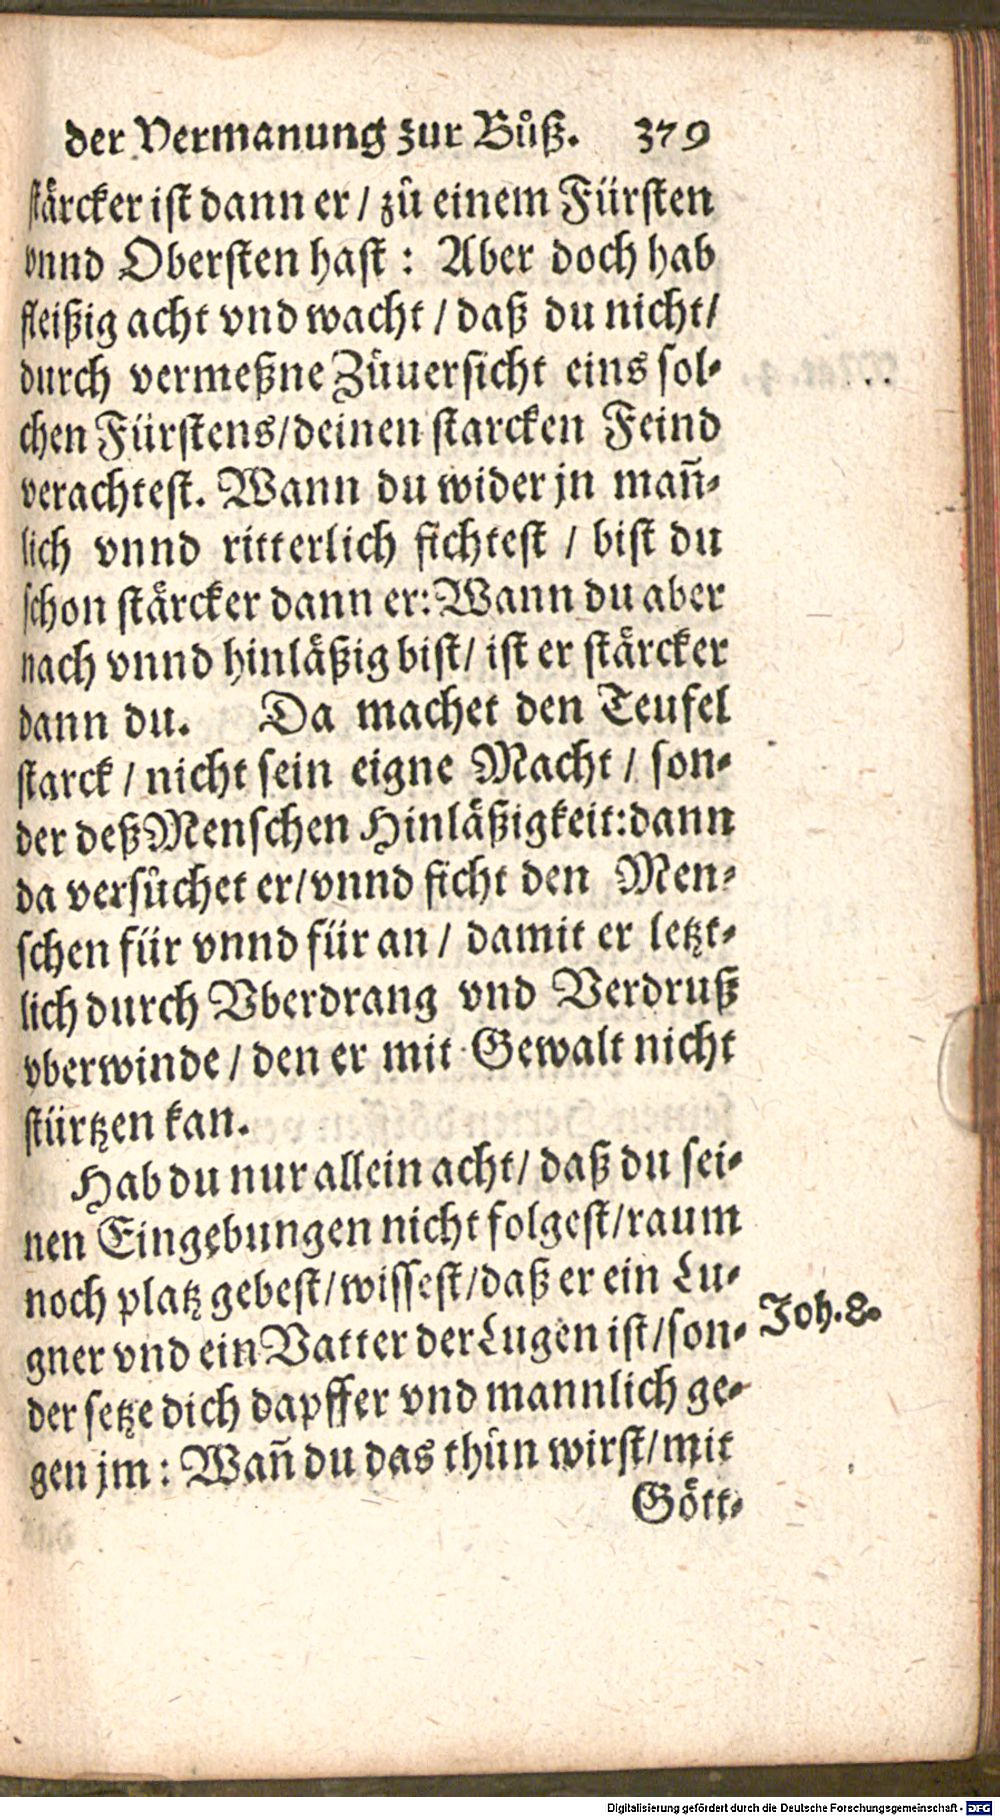 der Vermanung zur Bůß. 379
stärcker ist dann er / zů einem Fürsten
vnnd Obersten hast : Aber doch hab
fleißig acht vnd wacht / daß du nicht/
durch vermeßne Zůuersicht eins sol-
chen Fürstens/deinen starcken Feind
verachtest. Wann du wider jn mañ-
lich vnnd ritterlich fichtest / bist du
schon stärcker dann er: Wann du aber
nach vnnd hinläßig bist/ ist er stärcker
dann du. Da machet den Teufel
starck / nicht sein eigne Macht / son-
der deß Menschen Hinläßigkeit: dann
da versůchet er/vnnd ficht den Men-
schen für vnnd für an / damit er letzt-
lich durch Vberdrang vnd Verdruß
vberwinde / den er mit Gewalt nicht
stürtzen kan.
Hab du nur allein acht/ daß du sei-
nen Eingebungen nicht folgest/raum
noch platz gebest/wissest/daß er ein Lu-
gner vnd ein Vatter der Lugen ist/son-
Joh. 8.
der setze dich dapffer vnd mannlich ge-
gen jm : Wañ du das thůn wirst/mit
Gött-
Digitalisierung gefördert durch die Deutsche Forschungsgemeinschaft - DFG